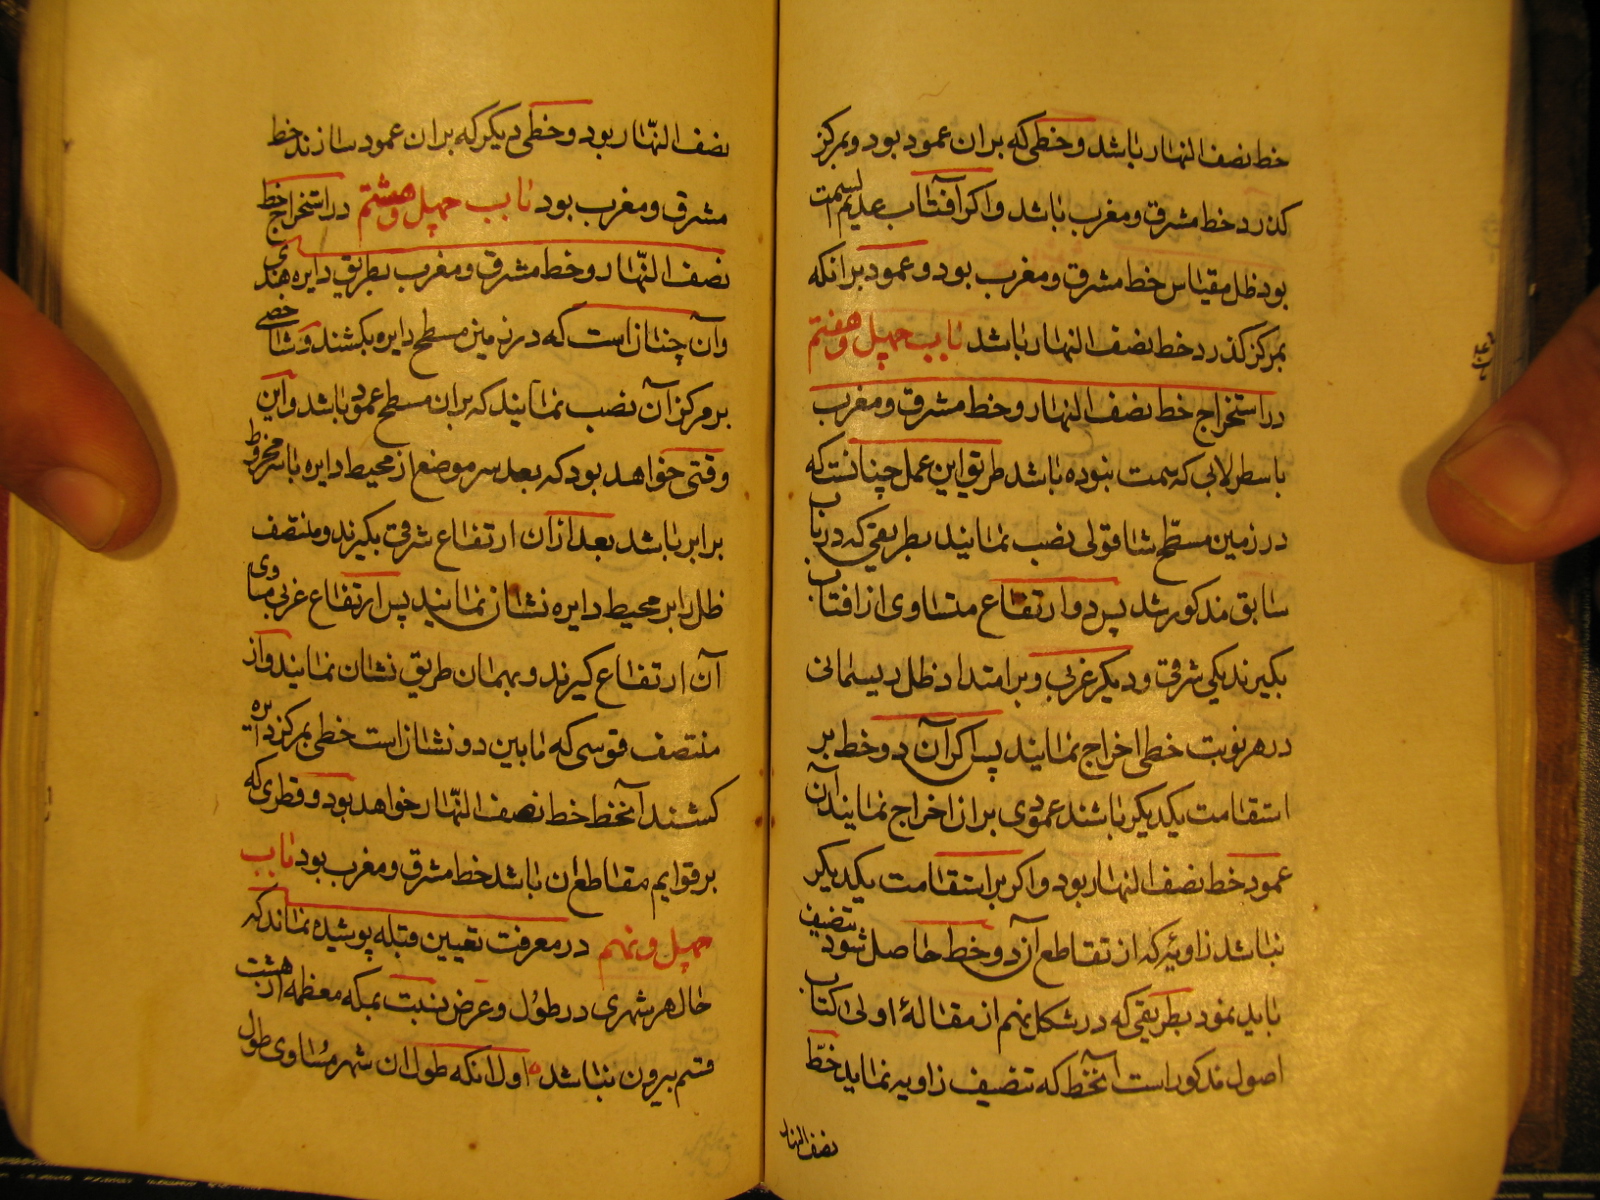 خط نصف النهار باشد و خطی که بران عمود بود و بمرکز
کذرد خط مشرق و مغرب باشد و اکر آفتاب عدیم السمت
بود ظل مقیاس خط مشرق و مغرب بود و عمود برانکه
بمرکز کذرد خط نصف النهار باشد باب چهل و هفتم
در استخراج خط نصف النهار و خط مشرق و مغرب
باسطرلابی که سمت نبوده باشد طریق این عمل چنانست که
در زمین مسطّح شاقولی نصب نمایند بطریقی که در باب
سابق مذکور شد پس دو ارتفاع متساوی از افتاب
بکیرند یکی شرقی و دیکر غربی و بر امتداد ظل ریسمانی
در هر نوبت خطی اخراج نمایند پس اکر آن دو خط بر
استقامت یکدیکر باشند عمودی بران اخراج نمایند آن
عمود خط نصف النهار بود و اکر بر استقامت یکدیکر
نباشد زاویهٔ که از تقاطع آن دو خط حاصل شود تنصیف
باید نمود بطریقی که در شکل نهم از مقالهٔ اولی کتاب
اصول مذکور است آنخط که تنصیف زاویه نماید خطّ
نصف النهار
نصف النّهار بود و خطی دیکر که بران عمود سازند خط
مشرق و مغرب بود باب چهل و هشتم در استخراج خط
نصف النّهار و خط مشرق و مغرب بطریق دایره هندی
و آن چنان است که در زمین مسطح دایره بکشند و شاخصی
بر مرکز آن نصب نمایند که بران مسطح عمود باشد و این
وقتی خواهد بود که بعد سر موضع از محیط دایره با سر مخروط
برابر باشد بعد ازان ارتفاع شرقی بکیرند و منتصف
ظل را بر محیط دایره نشان نمایند پس ارتفاع غربی مساوی
آن ارتفاع کیرند و بهمان طریق نشان نمایند و از
منتصف قوسی که مابین دو نشان است خطی بمرکز دایره
کشند آنخط خط نصف النّهار خواهد بود و قطری که
بر قوایم مقاطع ان باشد خط مشرق و مغرب بود باب
چهل و نهم در معرفت تعیین قبله پوشیده نماند که
حال هر شهری در طول و عرض نسبت بمکه معظمه از هشت
قسم بیرون نباشد ه اول انکه طول ان شهر مساوی طول